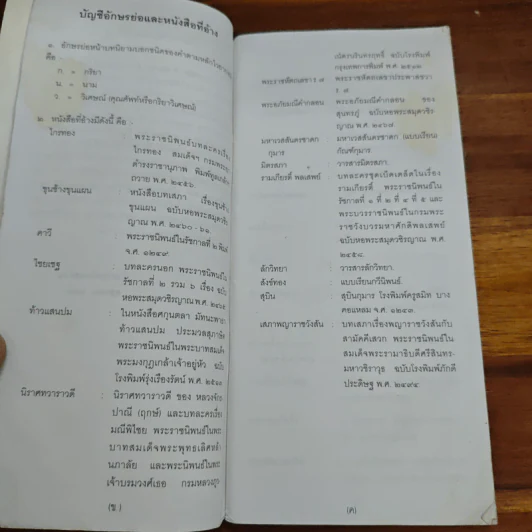 บัญชีอักษรย่อและหนังสือที่อ้าง
๑. อักษรย่อหน้าบทนิยามบอกชนิดของคำตามหลักไวยากรณ์
คือ -
ก = กริยา
น = นาม
ว = วิเศษณ์ (คุณศัพท์หรือกริยาวิเศษณ์)
๒. หนังสือที่อ้างมีดังนี้ คือ -
ไกรทอง : พระราชนิพนธ์บทละครเรื่อง
ไกรทอง สมเด็จฯ กรมพระยา
ดำรงราชานุภาพ พิมพ์ทูลเกล้าฯ
ถวาย พ.ศ. ๒๔๕๖
ขุนช้างขุนแผน : หนังสือบทเสภา เรื่องขุนช้าง
ขุนแผน ฉบับหอพระสมุดวชิร
ญาณ พ.ศ. ๒๔๖๐ - ๖๑
คาวี : พระราชนิพนธ์ในรัชกาลที่ ๒ พิมพ์
จ.ศ. ๑๒๔๙
ไชยเชฐ : บทละครนอก พระราชนิพนธ์ใน
รัชกาลที่ ๒ รวม ๖ เรื่อง ฉบับ
หอพระสมุดวชิรญาณ พ.ศ.
ท้าวแสนปม : ในหนังสือศกุนตลา มัทนะพาธา
ท้าวแสนปม ประมวลสุภาษิต
พระราชนิพนธ์ในพระบาทสมเด็จ
พระมงกุฎเกล้าเจ้าอยู่หัว ฉบับ
โรงพิมพ์รุ่งเรืองรัตน์ พ.ศ.
นิราศทวาราวดี : นิราศทวาราวดี ของ หลวงจักร
ปาณี (ฤกษ์) และบทละครเรื่อง
มณีพิไชย พระราชนิพนธ์ในพระ
บาทสมเด็จพระพุทธเลิศหล้า
นภาลัย และพระนิพนธ์ในพระ
เจ้าบรมวงศ์เธอ กรมหลวง
(ข)
ฉบับโรงพิมพ์
กรุงเทพการพิมพ์ พ.ศ.
พระราชหัตถเลขา ร.๗ : พระราชหัตถเลขาประพาสชวา
ร. ๗
พระอภัยมณีคำกลอน : พระอภัยมณีคำกลอน ของ
สุนทรภู่ ฉบับหอพระสมุดวชิร
ญาณ พ.ศ. ๒๔๖๗
มหาเวสสันดรชาดก : มหาเวสสันดรชาดก (แบบเรียน)
กุมาร กัณฑ์กุมาร
มิตรสภา : วารสารมิตรสภา
รามเกียรติ์ พลเสพย์ : บทละครชุดเบ็ดเตล็ดในเรื่อง
รามเกียรติ์ พระราชนิพนธ์ใน
รัชกาลที่ ๑ ที่ ๒ ที่ ๔ ที่ ๕ และ
พระบวรราชนิพนธ์ในกรมพระ
ราชวังบวรมหาศักดิพลเสพย์
ฉบับหอพระสมุดวชิรญาณ พ.ศ.
๒๔๕๘
ลักวิทยา : วารสารลักวิทยา
สังข์ทอง : แบบเรียนกวีนิพนธ์
สุบิน : สุบินกุมาร โรงพิมพ์ครูสมิท บาง
คอแหลม จ.ศ. ๑๒๔๓
เสภาพญาราชวังสัน : บทเสภาเรื่องพญาราชวังสันกับ
สามัคคีเสวก พระราชนิพนธ์ใน
สมเด็จพระรามาธิบดีศรีสินทร-
มหาวชิราวุธ ฉบับโรงพิมพ์ภักดี
ประดิษฐ พ.ศ. ๒๔๙๔
(ค)